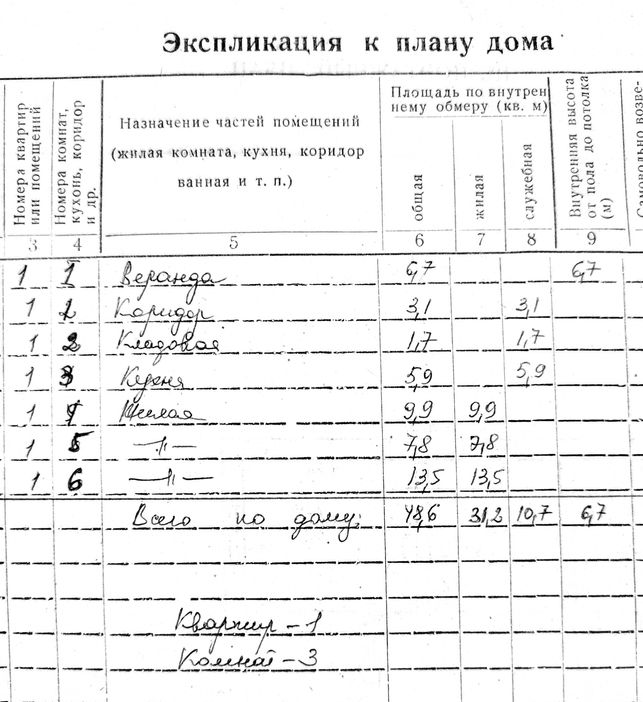 Экспликация к плану дома
Номера квартир или помещений
Номера комнат, кухонь, коридор и др.
Назначение частей помещений
(жилая комната, кухня, коридор
ванная и т. п.)
Площадь по внутрен
нему обмеру (кв. м)
общая
жилая
служебная
Внутренняя высота от пола до потолка (м)
Самовольно возве-
3 4 5 6 7 8 9
1 1 Веранда 6,7 6,7
1 2 Коридор 3,1 3,1
1 2 Кладовая 1,7 1,7
1 3 Кухня 5,9 5,9
1 4 Жилая 9,9 9,9
1 5 —"— 7,8 7,8
1 6 —"— 13,5 13,5
Всего по дому: 48,6 31,2 10,7 6,7
Квартир – 1
Комнат – 3